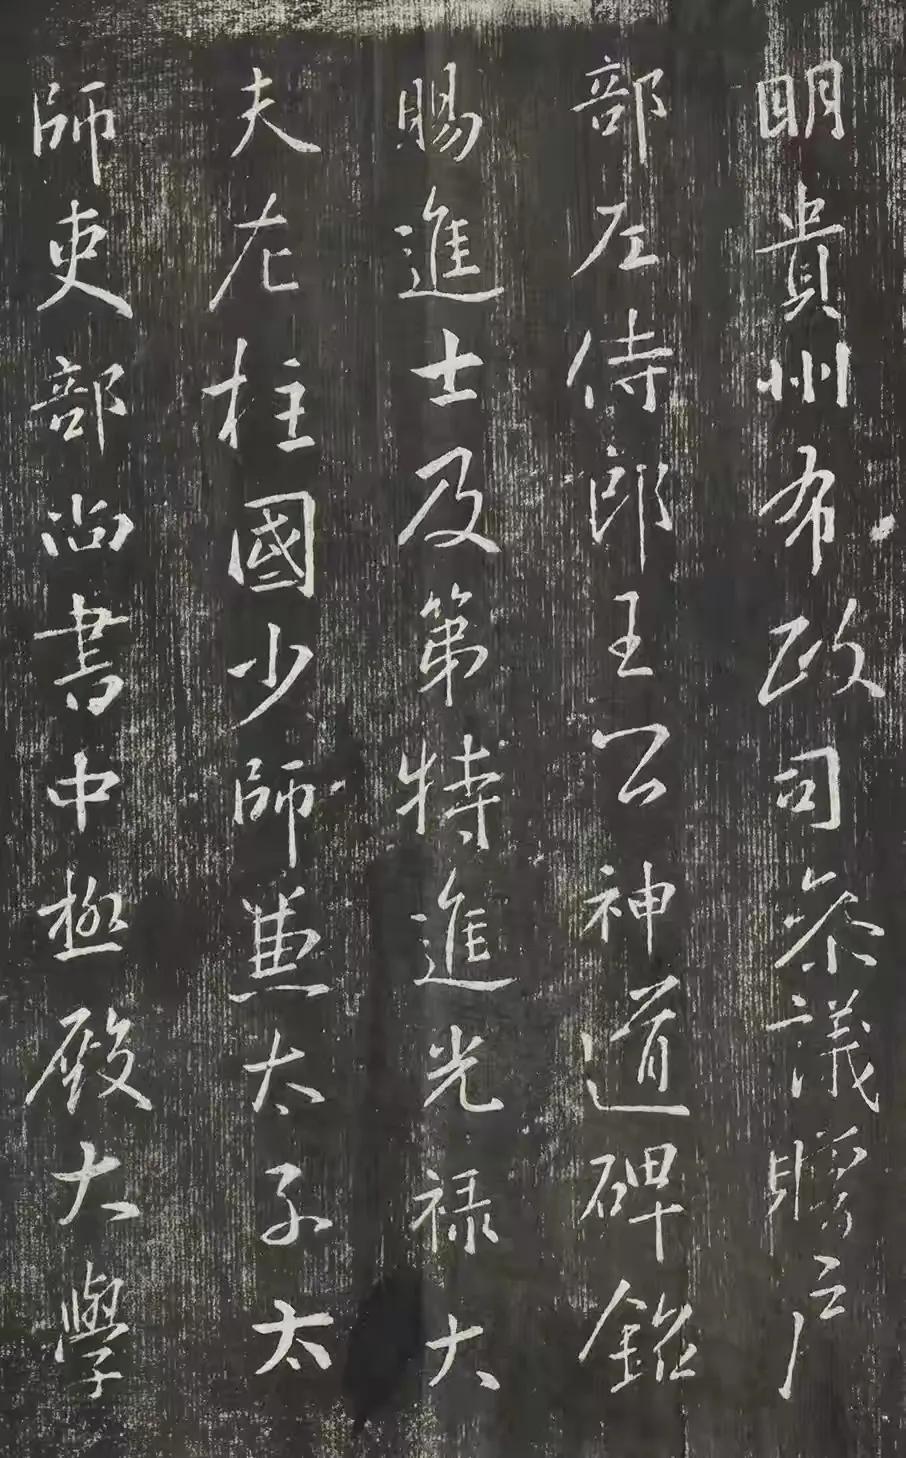 明貴州布政司參議贈户
部左侍郎王公神道碑銘
賜進士及第特進光禄大
夫左柱國少師兼太子太
師吏部尚書中極殿大學